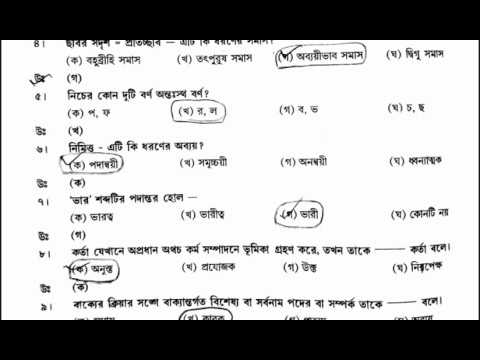 ৪। ছবির সদৃশ = প্রতিচ্ছবি — এটি কি ধরণের সমাস?
(ক) বহুব্রীহি সমাস (খ) তৎপুরুষ সমাস (গ) অব্যয়ীভাব সমাস (ঘ) দ্বিগু সমাস
উঃ (গ)
৫। নিচের কোন দুটি বর্ণ অন্তঃস্থ বর্ণ?
(ক) প, ফ (খ) র, ল (গ) ব, ভ (ঘ) চ, ছ
উঃ (খ)
৬। নিমিত্ত - এটি কি ধরণের অব্যয়?
(ক) পদান্বয়ী (খ) সমূচ্চয়ী (গ) অনন্বয়ী (ঘ) ধ্বন্যাত্মক
উঃ (ক)
৭। 'ভার' শব্দটির পদান্তর হোল —
(ক) ভারত্ব (খ) ভারীত্ব (গ) ভারী (ঘ) কোনটি নয়
উঃ (গ)
৮। কর্তা যেখানে অপ্রধান অথচ কর্ম সম্পাদনে ভূমিকা গ্রহণ করে, তখন তাকে —— কর্তা বলে।
(ক) অনুক্ত (খ) প্রযোজক (গ) উক্ত (ঘ) নিরপেক্ষ
উঃ (ক)
৯। বাক্যের ক্রিয়ার সঙ্গে বাক্যান্তর্গত বিশেষ্য বা সর্বনাম পদের বা সম্পর্ক তাকে —— বলে।
(খ) কারক